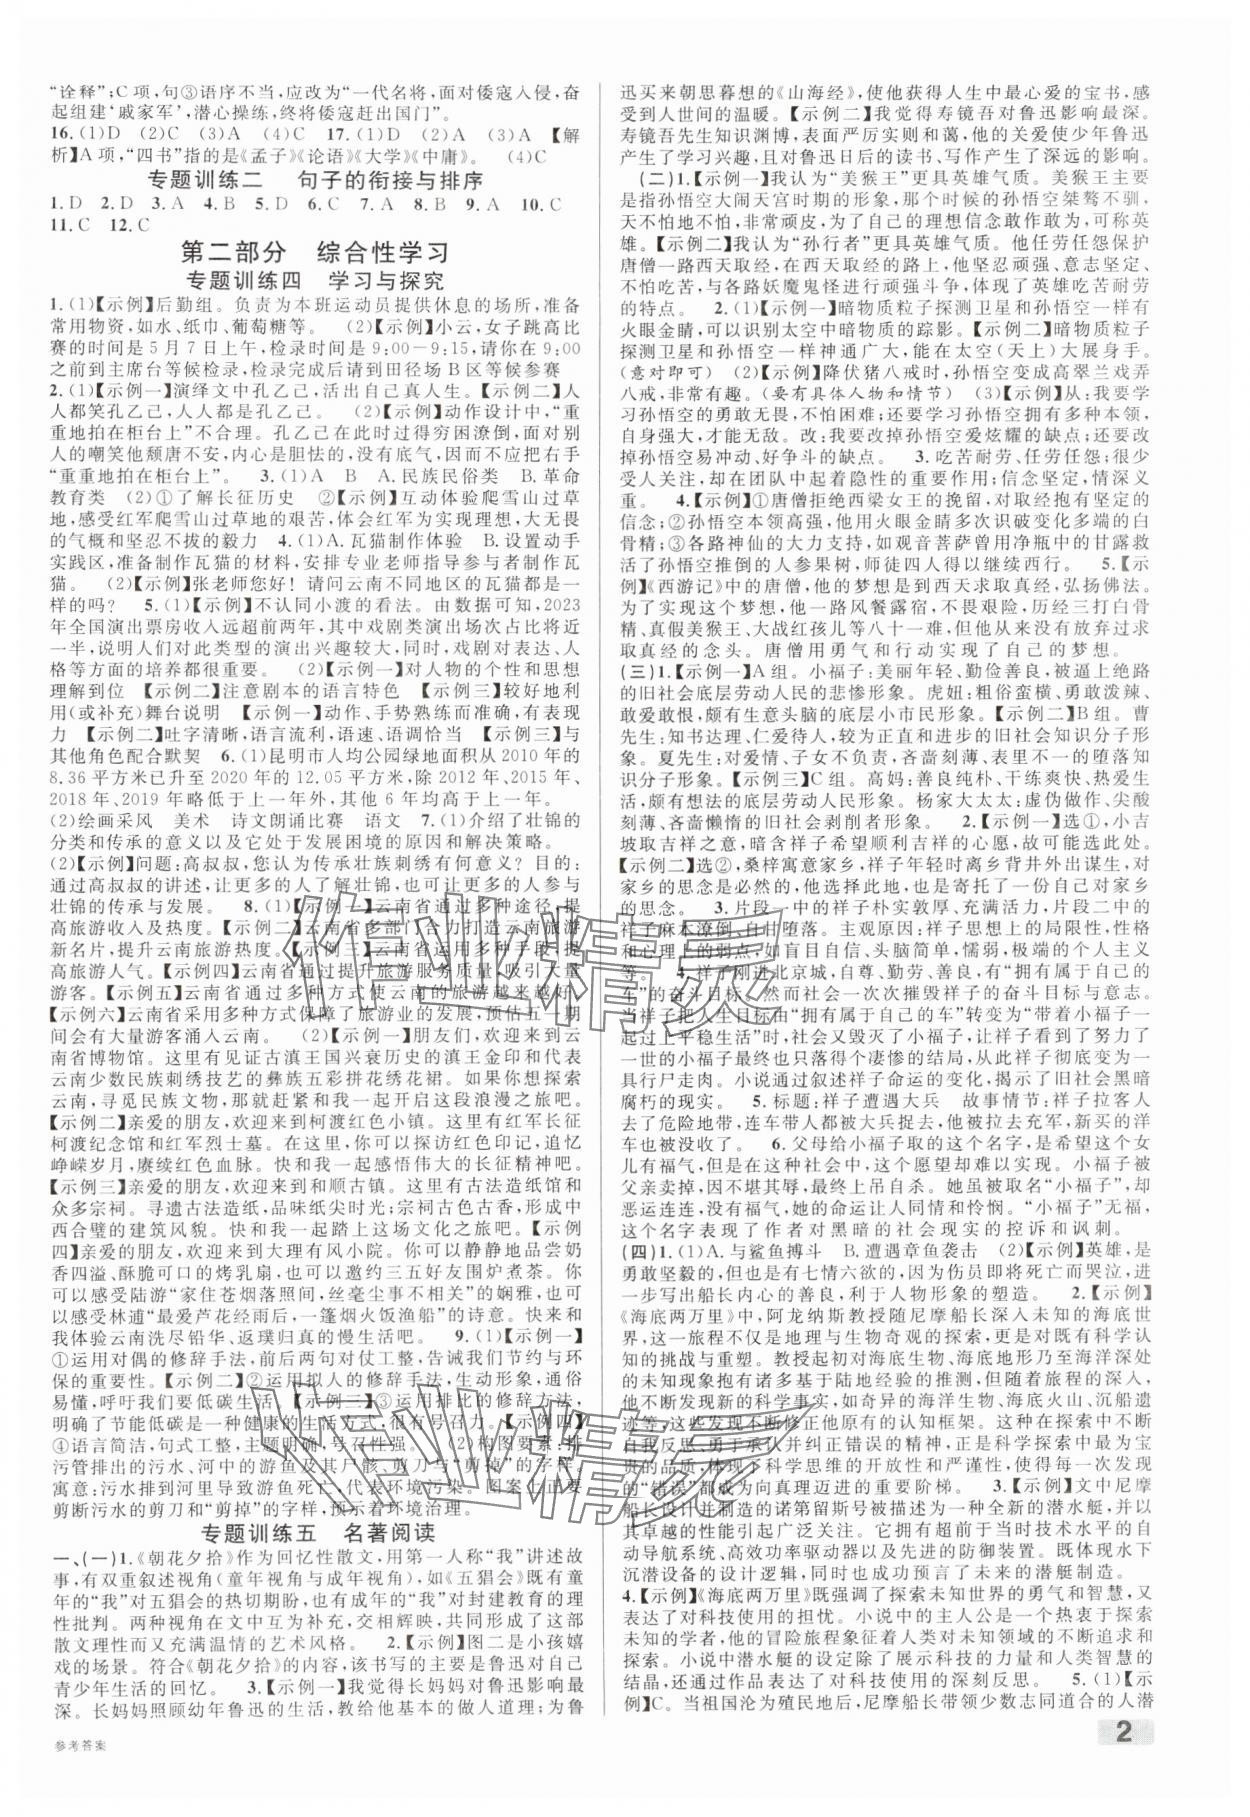 “诠释”;C项,句③语序不当,应改为“一代名将,面对倭寇入侵,奋
起组建‘戚家军’,潜心操练,终将倭寇赶出国门”。
16.(1)D (2)C (3)A (4)C 17.(1)D (2)C (3)A 【解
析】A项,“四书”指的是《孟子》《论语》《大学》《中庸》。 (4)C
专题训练二 句子的衔接与排序
1.D 2.D 3.A 4.B 5.D 6.C 7.A 8.B 9.A 10.C
11.C 12.C
第二部分 综合性学习
专题训练四 学习与探究
1.(1)【示例】后勤组。负责为本班运动员提供休息的场所,准备
常用物资,如水、纸巾、葡萄糖等。 (2)【示例】小云,女子跳高比
赛的时间是5月7日上午,检录时间是9:00-9:15,请你在9:00
之前到主席台等候检录,检录完成后请到田径场B区等候参赛
2.(1)【示例一】演绎文中孔乙己,活出自己真人生。【示例二】人
人都笑孔乙己,人人都是孔乙己。 (2)【示例】动作设计中,“重
重地拍在柜台上”不合理。孔乙己在此时已经穷困潦倒,面对别
人的嘲笑他颓唐不安,内心是胆怯的,没有底气,因而不应把右手
“重重地拍在柜台上”。 3.(1)A B A.民族民俗类 B.革命
教育类 (2)①了解长征历史 ②【示例】互动体验爬雪山过草
地,感受红军爬雪山过草地的艰苦,体会红军为实现理想,大无畏
的气概和坚忍不拔的毅力 4.(1)A.瓦猫制作体验 B.设置动手
实践区,准备制作瓦猫的材料,安排专业老师指导参与者制作瓦
猫。 (2)【示例】张老师您好!请问云南不同地区的瓦猫都是一
样的吗? 5.(1)【示例】不认同小渡的看法。由数据可知,2023
年全国演出票房收入远超前两年,其中戏剧类演出场次占比将近
一半,说明人们对此类型的演出兴趣较大,同时,戏剧对文化、人
格等方面的培养都很重要。 (2)【示例一】对人物的个性和思想
理解到位 【示例二】注意剧本的语言特色 【示例三】较好地利
用(或补充)舞台说明 【示例一】动作、手势熟练而准确,有表现
力 【示例二】吐字清晰,语言流利,语速、语调恰当 【示例三】与
其他角色配合默契 6.(1)昆明市人均公园绿地面积从2010年的
8.36平方米已升至2020年的12.05平方米,除2012年、2015年、
2018年、2019年略低于上一年外,其他6年均高于上一年。
(2)绘画采风 美术 诗文朗诵比赛 语文 7.(1)介绍了壮锦的
分类和传承的意义以及它处于发展困境的原因和解决策略。
(2)【示例】问题:高叔叔,您认为传承壮族刺绣有何意义? 目的:
通过高叔叔的讲述,让更多的人了解壮锦,让更多的人参与
壮锦的传承与发展。 8.(1)【示例一】云南省通过多种途径,提
高旅游收入及热度。【示例二】云南省多部门合力打造云南旅游
新名片,提升云南旅游热度。【示例三】云南省运用多种方式,提
高旅游人气。【示例四】云南省通过提升旅游服务质量,吸引大量
游客。【示例五】云南省通过多种方式使云南的旅游越来越好。
【示例六】云南省采用多种方式保障了旅游业的发展,预估五一期
间会有大量游客涌入云南。 (2)【示例一】朋友们,欢迎来到云
南省博物馆。这里有见证古滇王国兴衰历史的滇王金印和代表
云南少数民族刺绣技艺的彝族五彩拼花绣花裙。如果你想探索
云南,寻觅民族文物,那就赶紧和我一起开启这段浪漫之旅吧。
【示例二】亲爱的朋友,欢迎来到柯渡红色小镇。这里有红军长征
柯渡纪念馆和红军烈士墓。在这里,你可以探访红色印记,追忆
峥嵘岁月,赓续红色血脉。快和我一起感悟伟大的长征精神吧。
【示例三】亲爱的朋友,欢迎来到和顺古镇。这里有古法造纸馆和
众多宗祠。寻访古法造纸,品味纸尖时光;宗祠古色古香,形成中
西合璧的建筑风貌。快和我一起踏上这场文化之旅吧。【示例
四】亲爱的朋友,欢迎来到大理有风小院。你可以静静地品尝奶
香四溢、酥脆可口的烤乳扇,也可以邀约三五好友围炉煮茶。你
可以感受陆游“家住苍烟落照间,丝毫尘事不相关”的娴雅,也可
以感受林逋“最爱芦花经雨后,一篷烟火饭渔船”的诗意。快来和
我体验云南洗尽铅华、返璞归真的慢生活吧。 9.(1)【示例一】
①运用对偶的修辞手法,前后两句对仗工整,告诫我们节约与环
保的重要性。【示例二】②运用拟人的修辞手法,生动形象,通俗
易懂,呼吁我们要低碳生活。【示例三】③运用排比的修辞方法,
明确了节能低碳是一种健康的生活方式,很有号召力。【示例四】
④语言简洁,句式工整,主题明确,号召性强。 (2)构图要素:排
污管排出的污水、河中的游鱼及其尸骸、剪刀与“剪掉”的字样。
寓意:污水排到河里导致游鱼死亡,代表环境污染。图案上正要
剪断污水的剪刀和“剪掉”的字样,预示着环境治理。
专题训练五 名著阅读
一、(一)1.《朝花夕拾》作为回忆性散文,用第一人称“我”讲述故
事,有双重叙述视角(童年视角与成年视角),如《五猖会》既有童
年的“我”对五猖会的热切期盼,也有成年的“我”对封建教育的理
性批判。两种视角在文中互为补充,交相辉映,共同形成了这部
散文理性而又充满温情的艺术风格。 2.【示例】图二是小孩嬉
戏的场景。符合《朝花夕拾》,该书写的主要是鲁迅对自己
青少年生活的回忆。 3.【示例一】我觉得长妈妈对鲁迅影响最
深。长妈妈照顾幼年鲁迅的生活,教给他基本的做人道理;为鲁
迅买来朝思暮想的《山海经》,使他获得人生中最心爱的宝书,感
受到人世间的温暖。【示例二】我觉得寿镜吾对鲁迅影响最深。
寿镜吾先生知识渊博,表面严厉实则和蔼,他的关爱使少年鲁迅
产生了学习兴趣,且对鲁迅日后的读书、写作产生了深远的影响。
(二)1.【示例一】我认为“美猴王”更具英雄气质。美猴王主要
是指孙悟空大闹天宫时期的形象,那个时候的孙悟空桀骜不驯,
天不怕地不怕,非常顽皮,为了自己的理想信念敢作敢为,可称英
雄。【示例二】我认为“孙行者”更具英雄气质。他任劳任怨保护
唐僧一路西天取经,在西天取经的路上,他大智大勇、意志坚定、
不怕困难,与各路妖魔鬼怪进行顽强斗争,体现了其英雄吃苦耐劳
的特点。 2.(1)【示例一】暗物质粒子探测卫星和孙悟空一样有
火眼金睛,可以识别太空中暗物质的踪影。【示例二】暗物质粒子
探测卫星和孙悟空一样神通广大,能在太空(天上)大展身手。
(意对即可) (2)【示例】降伏猪八戒时,孙悟空变成高翠兰戏弄
八戒,非常有趣。(要有具体人物和情节) (3)【示例】从:我要学
习孙悟空的勇敢无畏,不怕困难;还要学习孙悟空拥有多种本领,
自身强大,才能无敌。改:我要改掉孙悟空爱炫耀的缺点;还要改
掉孙悟空易冲动、好争斗的缺点。 3.吃苦耐劳、任劳任怨,很少
受人关注,却在团队中有担当和隐性的重要作用;情感坚定,情深义
重。 4.【示例】①唐僧拒绝西梁女王的挽留,对取经抱有坚定的
信念;②孙悟空本领高强,他用火眼金睛多次识破变化多端的白
骨精;③各路神仙的大力支持,如观音菩萨曾用净瓶中的甘露救
活了孙悟空推倒的人参果树,师徒四人得以继续西行。 5.【示
例】《西游记》中的唐僧,他的梦想是到西天求取真经,弘扬佛法。
为了实现这个梦想,他一路风餐露宿,不畏艰险,历经三打白骨
精、真假美猴王、大战红孩儿等八十一难,但他从来没有放弃过求
取真经的梦想。唐僧用勇气和行动实现了自己的梦想。
(三)1.【示例一】A组。小福子:美丽年轻、勤俭善良,被逼上绝路
的旧社会底层劳动人民的悲惨形象。虎妞:粗俗蛮横、勇敢泼辣、
敢爱敢恨,颇有生意头脑的底层小市民形象。【示例二】B组。曹
先生:知书达理、仁爱待人,较为正直和进步的旧社会知识分子形
象。夏先生:对爱情、子女不负责、吝啬刻薄、表里不一的堕落知
识分子形象。【示例三】C组。高妈:善良纯朴、干练爽快、热爱生
活,颇有想法的底层劳动人民形象。杨家大太太:虚伪做作、尖酸
刻薄、吝啬懒惰的旧社会剥削者形象。 2.【示例一】选①,小吉
坡取吉祥之意,暗含作者希望祥子顺利吉祥的心愿,故应选此处。
【示例二】选②,桑梓寓意家乡,祥子年轻时离乡背井外出谋生,对
家乡的思念是必然的,他选择此地,也是寄托了一份自己对家乡
的思念。 3.片段一中的祥子朴实敦厚、充满活力,片段二中的
祥子麻木潦倒、自甘堕落。主观原因:祥子思想上的局限性,性格
和心理上的弱点,如盲目自信、头脑简单,懦弱,极端的个人主义
等。 4.祥子刚进北京城,自尊、勤劳、善良,有“拥有属于自己的
车”的奋斗目标。然而,社会一次次摧毁祥子的奋斗目标与意志。
当祥子把人生目标由“拥有属于自己的车”转变为“带着小福子一
起过上平稳生活”时,社会又毁灭了小福子,当祥子看到了努力了
一世的小福子最终也只落得个凄惨的结局,祥子彻底崩溃,变成
一具行尸走肉。小说通过叙述祥子命运的变化,揭示了旧社会黑暗
腐朽的残酷。 5.标题:祥子遭遇大兵 故事情节:祥子拉客人
去了危险地带,连车带人都被大兵捉去,他被拉去充军,新买的洋
车也被没收了。 6.父母给小福子取的这个名字,是希望这个女
儿有福气,但在这种社会中,这个愿望却难以实现。小福子被
父亲卖掉,因不堪其苦,最终上吊自杀。她虽被取名“小福子”,却
恶运连连,没有福气,她的命运让人同情和怜悯。“小福子”无福,
这个名字表现了作者对黑暗的社会现实的控诉和讽刺。
(四)1.(1)A.与鲨鱼搏斗 B.遭遇章鱼袭击 (2)【示例】英雄,是
勇敢坚毅的,但是也是有七情六欲的,因为伤感即将死亡而哭泣,进
一步写出船长内心的善良,利于人物形象的塑造。 2.【示例】
《海底两万里》中,阿龙纳斯教授随尼摩船长深入未知的海底世
界,这一旅程不仅是对地理与生物奇观的探索,更是对既有科学认
知的挑战与重塑。教授起初对海底生物、海底地形乃至海洋深处
的未知现象抱有诸多基于陆地经验的推测,但随着旅程的深入,
他不断发现新的科学事实,如奇异的海洋生物、海底火山、沉船遗
迹等,这些发现不断修正他原有的认知框架。这种在探索中不断
自我反思、勇于承认并纠正错误的精神,正是科学探索中最为宝
贵的品质。它体现了科学思维的开放性和严谨性,使得每一次
的“错误”都成为向真理迈进的重要阶梯。 3.【示例】文中尼摩
船长设计并制造的诺第留斯号被描述为一种全新的潜水艇,其
以其卓越的性能引起广泛关注。它拥有超乎当时技术水平的自
动导航系统、高效功率驱动器以及先进的防御装置。既体现水下
沉潜设备的设计逻辑,同时也成功预言了未来的潜艇制造。
4.【示例】《海底两万里》既强调了探索未知世界的勇气和智慧,又
表达了对科技使用的担忧。小说中的主人公是一个热衷于探索
未知的学者,他的冒险旅程象征着人类对未知领域的不断追求和
探索。小说中潜水艇的设定除了展示科技的力量和人类智慧的
结晶,还通过作品表达了对科技使用的深刻反思。 5.(1)【示
例】C。当祖国沦为殖民地后,尼摩船长带领少数志同道合的人潜
参考答案
2
作业精灵
作业精灵